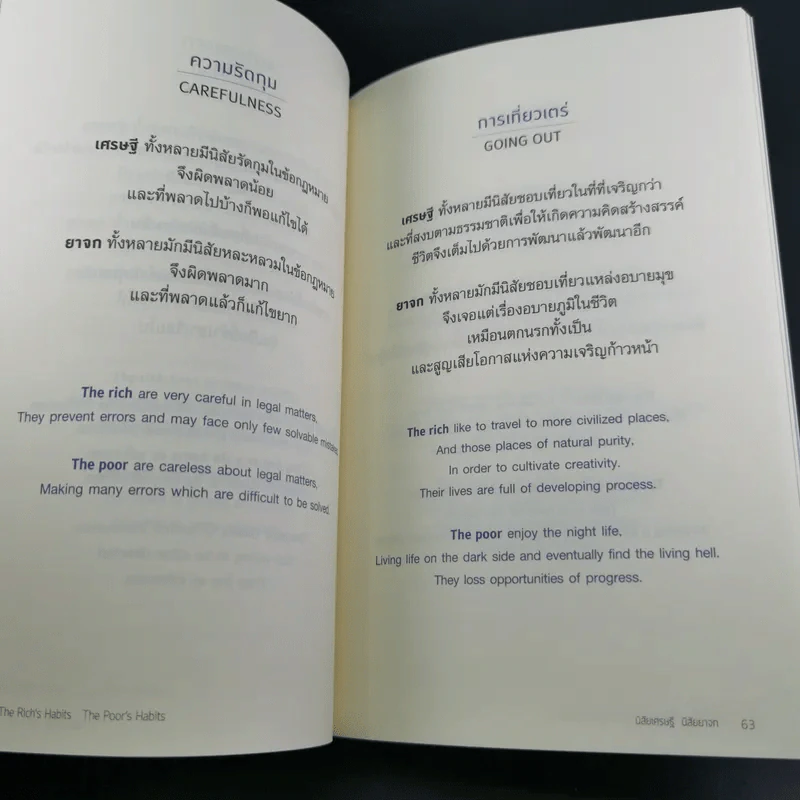 ความรัดกุม
CAREFULNESS
เศรษฐี ทั้งหลายมีนิสัยรัดกุมในข้อกฎหมาย
จึงผิดพลาดน้อย
และที่พลาดไปบ้างก็พอแก้ไขได้
ยาจก ทั้งหลายมักมีนิสัยหละหลวมในข้อกฎหมาย
จึงผิดพลาดมาก
และที่พลาดแล้วก็แก้ไขยาก
The rich are very careful in legal matters,
They prevent errors and may face only few solvable mistakes.
The poor are careless about legal matters,
Making many errors which are difficult to be solved.
The Rich's Habits The Poor's Habits
การเที่ยวเตร่
GOING OUT
เศรษฐี ทั้งหลายมีนิสัยชอบเที่ยวในที่ที่เจริญกว่า
และที่สงบตามธรรมชาติเพื่อให้เกิดความคิดสร้างสรรค์
ชีวิตจึงเต็มไปด้วยการพัฒนาแล้วพัฒนาอีก
ยาจก ทั้งหลายมักมีนิสัยชอบเที่ยวแหล่งอบายมุข
จึงเจอแต่เรื่องอบายภูมิในชีวิต
เหมือนตกนรกทั้งเป็น
และสูญเสียโอกาสแห่งความเจริญก้าวหน้า
The rich like to travel to more civilized places,
And those places of natural purity,
In order to cultivate creativity.
Their lives are full of developing process.
The poor enjoy the night life,
Living life on the dark side and eventually find the living hell,
They loss opportunities of progress.
นิสัยเศรษฐี นิสัยยาจก 63